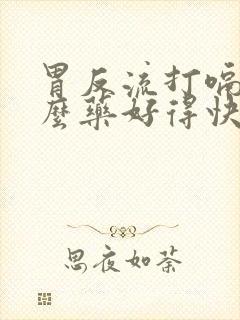 胃反流打嗝
麼藥好得快
思夜如荼